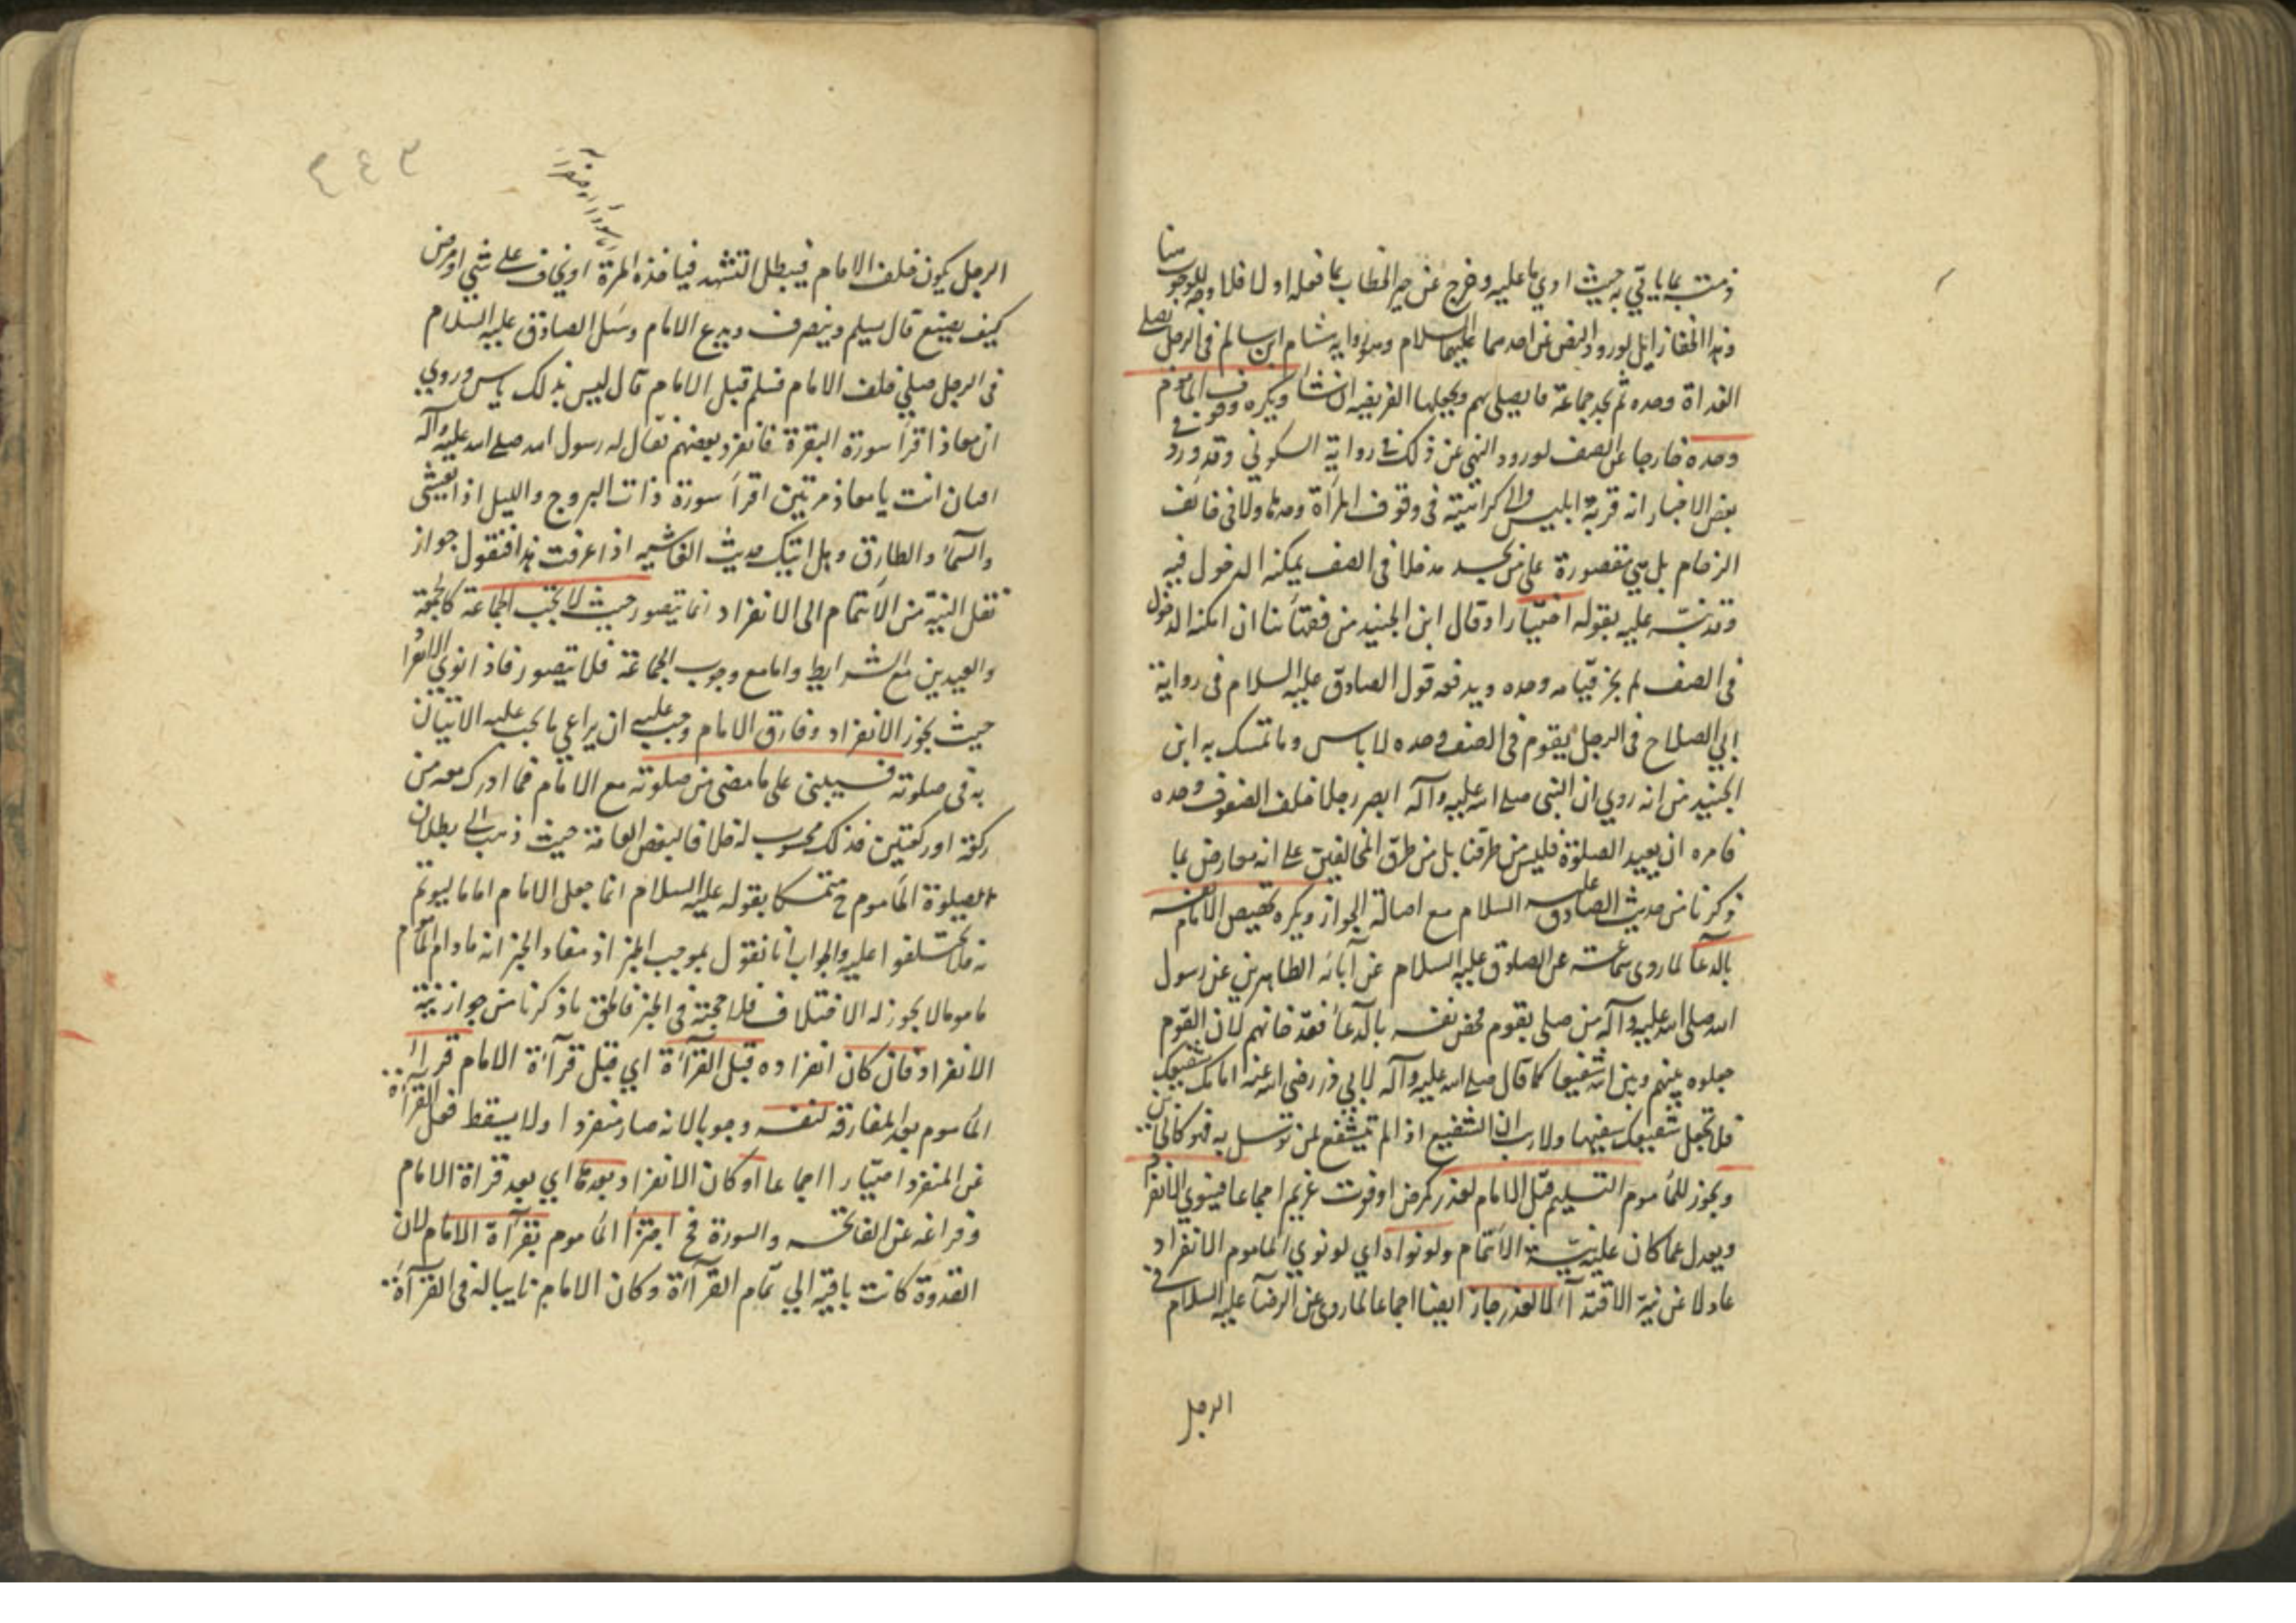 ذمته بما ياتي به حيث ادي ما عليه وخرج عن حيز الخطاب بما فعله اولا فلا وجه للوجوب
هنا
وهذا الخفا زايل لورود النص عن احدهما عليهما السلام وهو رواية هشام ابن سالم في الرجل يصلي
الغداة وحده ثم يجد جماعة قا يصلي بهم ويجعلها الفريضه ان شا ويكره وقوف الماموم
وحده خارجا عن الصف لورود النهي عن ذلك في رواية السكوني وقد ورد في
بعض الاخبار انه قربة ابليس ولا كراهية في وقوف المرأة وحدها ولا في خائف
الزحام بل هي مقصورة على من يجد مدخلا في الصف يمكنه الدخول فيه
وقد نبه عليه بقوله اختيارا وقال ابن الجنيد من فقهائنا ان امكنه الدخول
في الصف لم يجز قيامه وحده ويدفعه قول الصادق عليه السلام في رواية
ابي الصلاح في الرجل يقوم في الصف وحده لا باس وما تمسك به ابن
الجنيد من انه روي ان النبي صلى الله عليه وآله ابصر رجلا خلف الصفوف وحده
فامره ان يعيد الصلوة فليس من طرقنا بل من طرق المخالفين على انه معارض بما
ذكرنا من حديث الصادق عليه السلام مع اصالة الجواز ويكره تخصيص الامام نفسه
بالدعآ لما روى سماعة عن الصادق عليه السلام عن آبائه الطاهرين عن رسول
الله صلى الله عليه وآله من صلى بقوم فخص نفسه بالدعآ فقد خانهم لان القوم
جعلوه بينهم وبين الله شفيعا كما قال صلى الله عليه وآله لابي ذر رضي الله عنه امامك شفيعك
فلا تجعل شفيعك سفيها ولا ريب ان الشفيع اذا لم يشفع لمن توسل به فهو كالخائن
ويجوز للمأموم التسليم قبل الامام لعذر كمرض او فوت غريم اجماعا فينوي الانفراد
ويعدل عما كان عليه من نية الائتمام ولو نواه اي لو نوي الماموم الانفراد
عادلا عن نية الاقتدآ لا لعذر جاز ايضا اجماعا لما روي عن الرضآ عليه السلام في
الرجل
٢٤٣
الرجل يكون خلف الامام فيبطل التشهد فياخذه المرة او يخاف على شي او مرض
كيف يصنع قال يسلم وينصرف ويدع الامام وسئل الصادق عليه السلام
في الرجل صلي خلف الامام فسلم قبل الامام قال ليس بذلك باس وروي
ان معاذا قرأ سورة البقرة فانفرد بعضهم فقال له رسول الله صلى الله عليه وآله
افتان انت يا معاذ مرتين اقرأ سورة ذات البروج والليل اذا يغشى
والسمآ والطارق وهل اتيك حديث الغاشيه اذا عرفت هذا فنقول جواز
نقل النية من الائتمام الى الانفراد انما يتصور حيث لا تجب الجماعة كالجمعة
والعيدين مع الشرايط واما مع وجوب الجماعة فلا يتصور فاذا نوي الانفراد
حيث يجوز الانفراد وفارق الامام وجب عليه ان يراعي ما يجب عليه الاتيان
به في صلوته فسيبني على ما مضى من صلوته مع الامام فما ادرك معه من
ركعة او ركعتين فذلك محسوب له خلافا لبعض العامة حيث ذهب الى بطلان
الصلوة الماموم ح متمسكا بقوله عليه السلام انما جعل الامام اماما ليوتم
به فلا تختلفوا عليه والجواب انا نقول بموجب الخبر اذ مفاد الخبر انه مادام المأموم
ماموما لا يجوز له الاختلاف فلا حجة في الخبر فاطلق ما ذكرنا من جواز نية
الانفراد فان كان انفراده قبل القرآءة اي قبل قرآءة الامام قرأ
المأموم بعد المفارقة لنفسه وجوبا لانه صار منفردا ولا يسقط فعل القرآءة
عن المنفرد اختيارا اجماعا او كان الانفراد بعدها اي بعد قراة الامام
وفراغه عن الفاتحه والسورة فح اجتزأ المأموم بقرآءة الامام لان
القدوة كانت باقية الي تمام القرآءة وكان الامام نايبا له في القرآءة